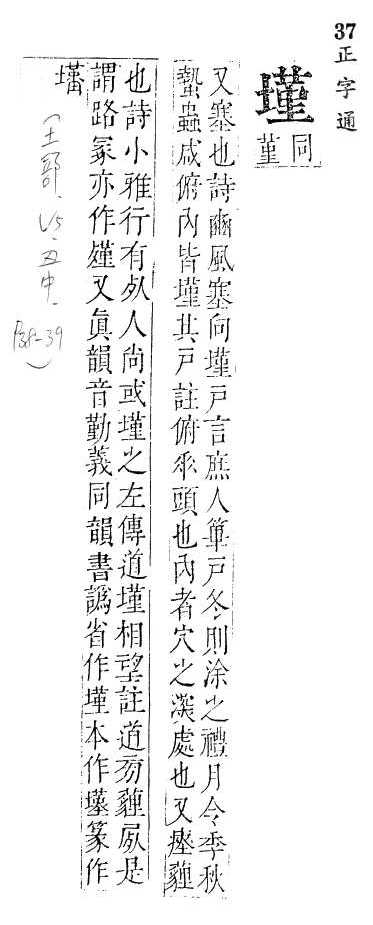 37
正字通
墐 同堇
又塞也詩豳風塞向墐戸言庶人篳戸冬則涂之禮月令季秋
蟄蟲咸俯內皆墐其戸註俯垂頭也內者穴之深處也又瘞薶
也詩小雅行有死人尚或墐之左傳道墐相望註道旁薶屍是
謂路冢亦作殣又眞韻音勤義同韻書譌省作墐本作墐篆作
土部 15 丑中
38-39